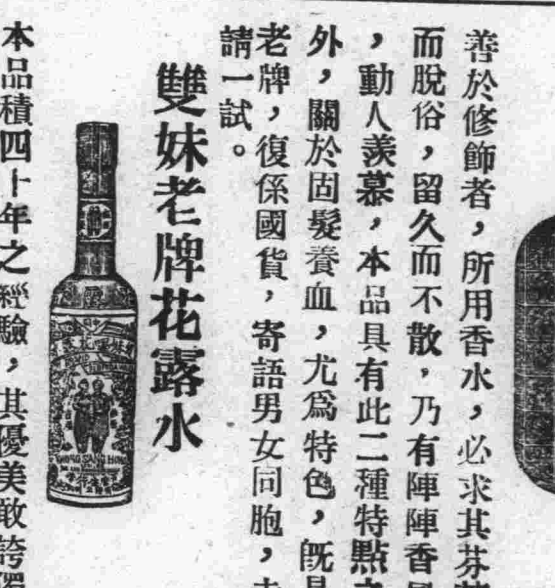 善於修飾者，所用香水，必求其芬
而脫俗，留久而不散，乃有陣陣香
，動人羨慕，本品具有此二種特點
外，關於固髮養血，尤爲特色，既
老牌，復係國貨，寄語男女同胞，
請一試。
雙妹老牌花露水
KWONG SANG HONG
本品積四十年之經驗，其優美敢誇